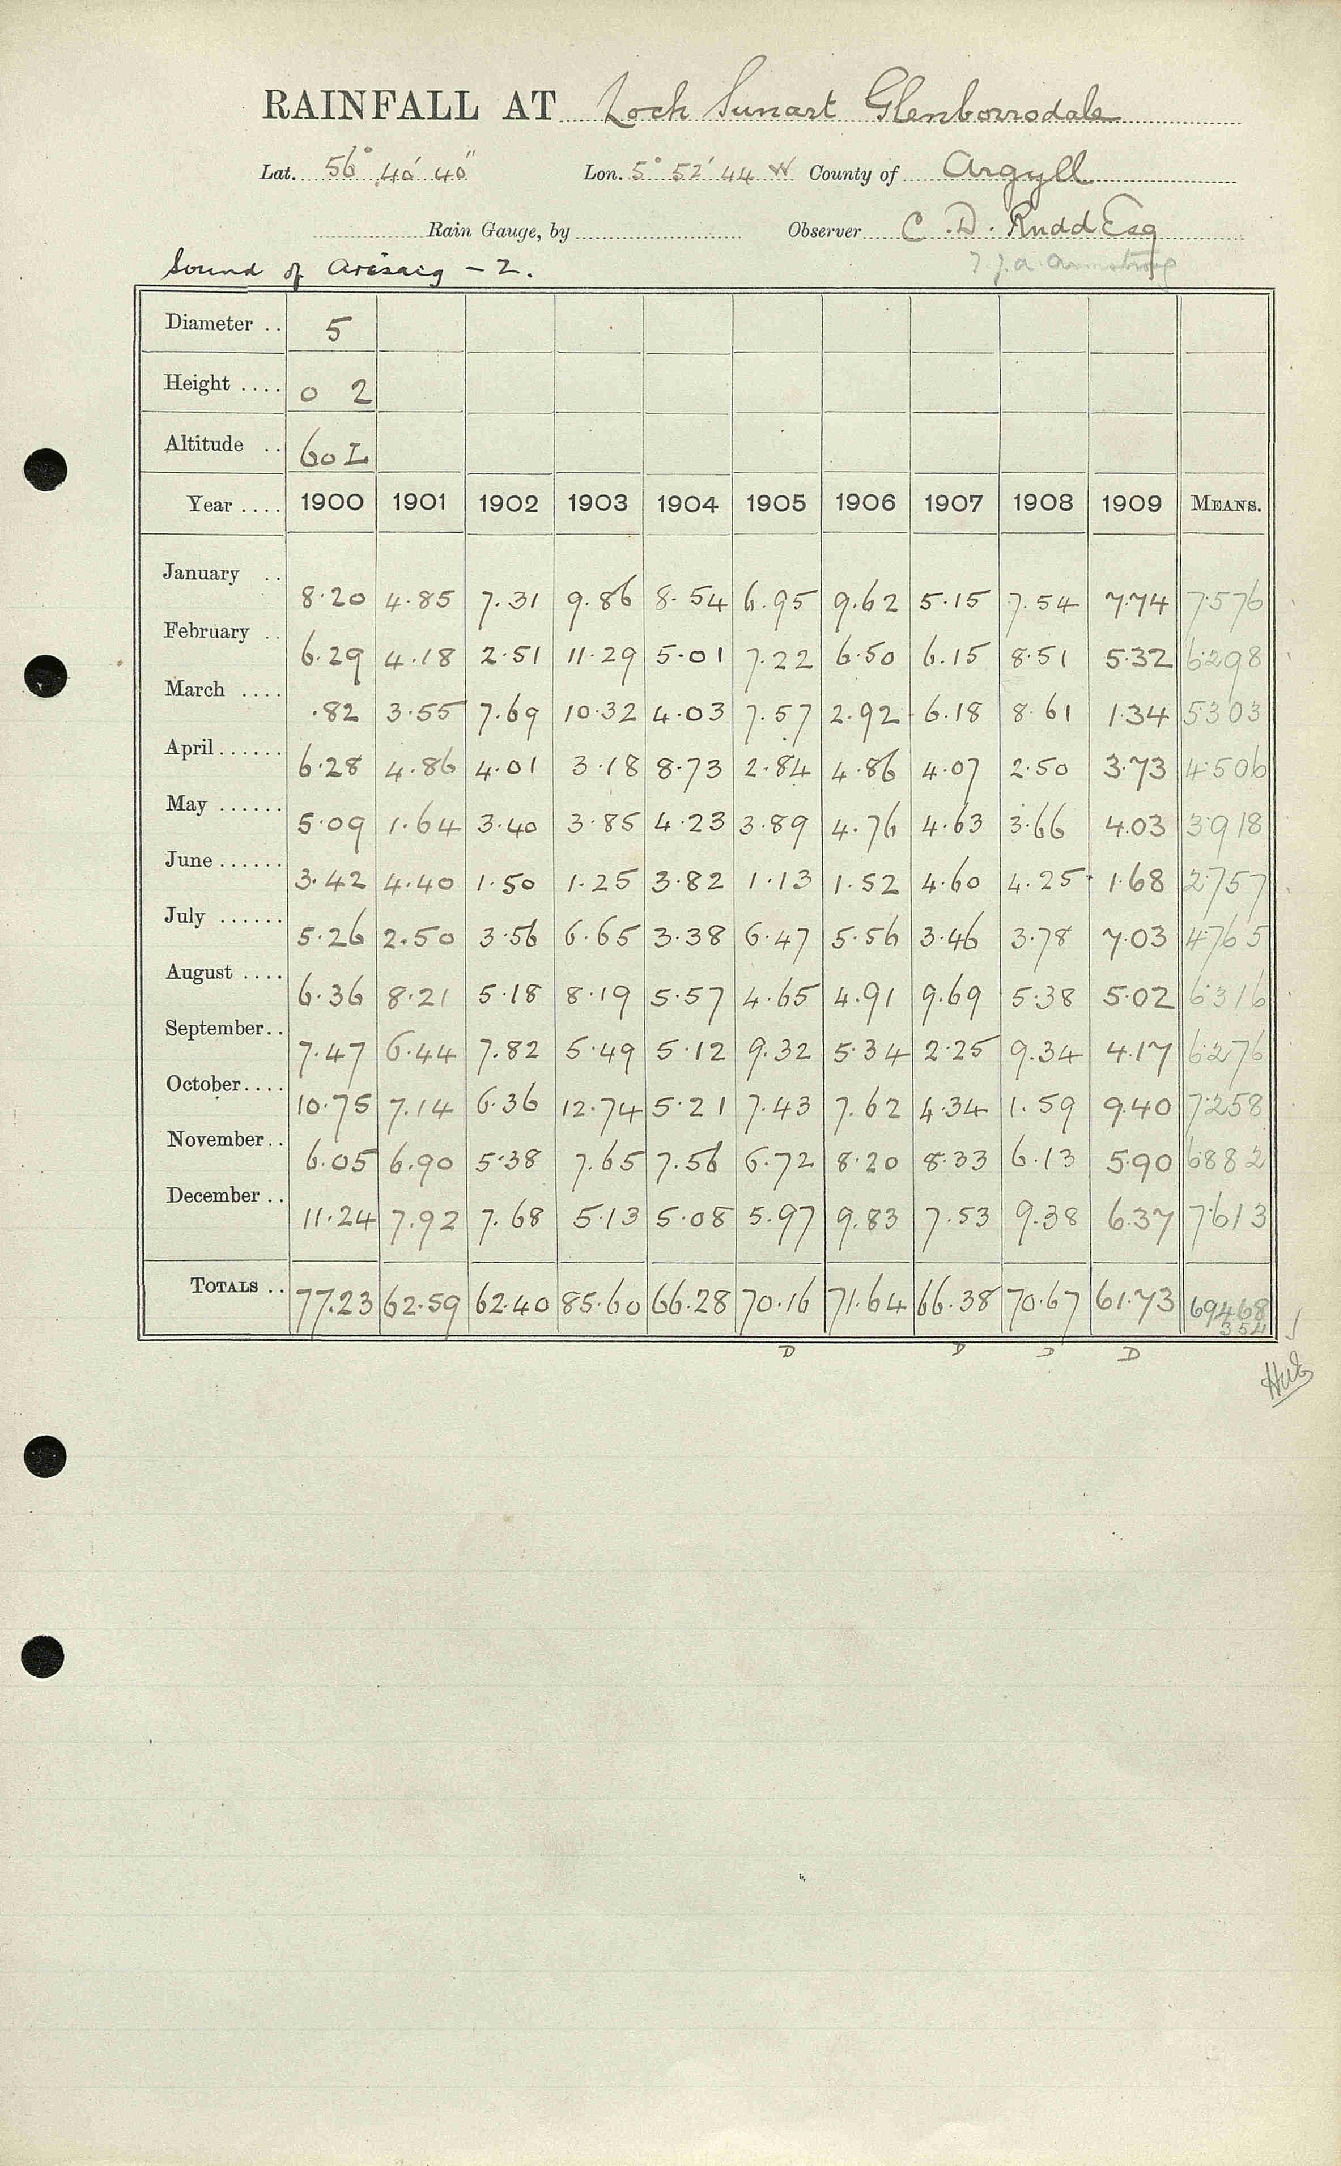 RAINFALL AT Loch Sunart Glenborrodale
Lat. 56° 40' 40" Lon. 5° 52' 44 W County of Argyll
Rain Gauge, by Observer C. D. Rudd Esq
Sound of Arisaig - 2. J. A. Armstrong
Diameter .. 5
Height .... 0 2
Altitude .. 60 L
Year .... 1900 1901 1902 1903 1904 1905 1906 1907 1908 1909 MEANS.
January .. 8.20 4.85 7.31 9.86 8.54 6.95 9.62 5.15 7.54 7.74 7.576
February .. 6.29 4.18 2.51 11.29 5.01 7.22 6.50 6.15 8.51 5.32 6.298
March .... .82 3.55 7.69 10.32 4.03 7.57 2.92 6.18 8.61 1.34 5303
April ...... 6.28 4.86 4.01 3.18 8.73 2.84 4.86 4.07 2.50 3.73 4.506
May ...... 5.09 1.64 3.40 3.85 4.23 3.89 4.76 4.63 3.66 4.03 3.918
June ...... 3.42 4.40 1.50 1.25 3.82 1.13 1.52 4.60 4.25 1.68 2.757
July ...... 5.26 2.50 3.56 6.65 3.38 6.47 5.56 3.46 3.78 7.03 4.765
August .... 6.36 8.21 5.18 8.19 5.57 4.65 4.91 9.69 5.38 5.02 6.316
September .. 7.47 6.44 7.82 5.49 5.12 9.32 5.34 2.25 9.34 4.17 6.276
October .... 10.75 7.14 6.36 12.74 5.21 7.43 7.62 4.34 1.59 9.40 7.258
November .. 6.05 6.90 5.38 7.65 7.56 6.72 8.20 8.33 6.13 5.90 6882
December .. 11.24 7.92 7.68 5.13 5.08 5.97 9.83 7.53 9.38 6.37 7.613
TOTALS .. 77.23 62.59 62.40 85.60 66.28 70.16 71.64 66.38 70.67 61.73 69468
354
D D D D